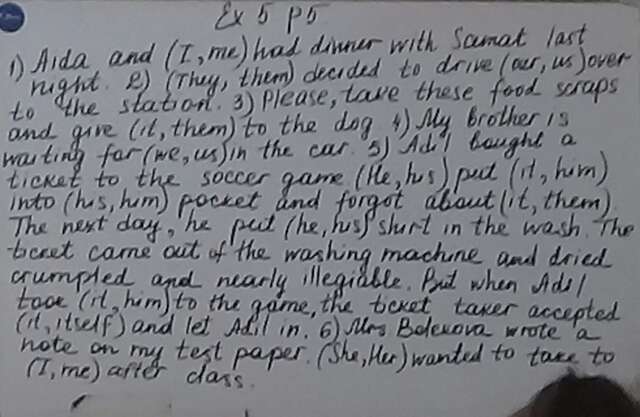 Ex 5 p5
1) Aida and (I, me) had dinner with Samat last
night. 2) (They, them) decided to drive (our, us) over
to the station. 3) Please, take these food scraps
and give (it, them) to the dog. 4) My brother is
waiting for (we, us) in the car. 5) Adil bought a
ticket to the soccer game. (He, his) put (it, him)
into (his, him) pocket and forgot about (it, them).
The next day, he put (he, his) shirt in the wash. The
ticket came out of the washing machine and dried
crumpled and nearly illegiable. But when Adil
took (it, him) to the game, the ticket taker accepted
(it, itself) and let Adil in. 6) Mrs Bolekova wrote a
note on my test paper. (She, Her) wanted to take to
(I, me) after class.